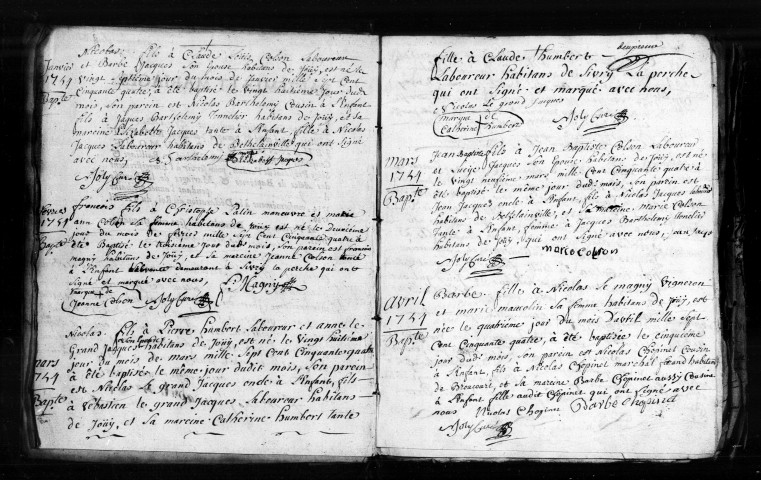 Nicolas fils à Claude Colson laboureur
Janvier et Barbe Jacques son Epouse habitans de Joüy, est né le
1754 vingt septieme jour du mois de Janvier mille sept cent
Bapte Cinquante quatre, à été baptisé le vingt huitieme jour dudt
mois, son parein est Nicolas Barthelemy Cousin à l'enfant
fils à Jaques Barthelemy Tonnelier habitans de Joüy, et sa
mareine Elizabette Jacques tante à l'enfant, fille à Nicolas
Jacques laboureur habitans de Bethelainville qui ont signé
avec nous, Barthelemy Elizabeth Jacques
Joly Curé
françois fils à Christophe manœuvre et marie
fevrier ann Colson sa femme habitans de Joüy est né le deuxieme
1754 jour du mois de fevrier mille sept Cent Cinquante quatre à
Bapte été Baptisé le troisieme jour dudt mois, son parein est francois
magny habitans de Joüy, et sa mareine Jeanne Colson tante
à l'enfant demeurant à Sivry la perche qui ont
signé et marqué avec nous,
marque de
Jeanne Colson Joly Curé f Magny
Nicolas fils à Pierre humbert laboureur et anne le
Grand Jacques habitans de Joüy, est né le vingt huitieme
mars jour du mois de mars mille sept Cent Cinquante quatre
1754 à été baptisé le même jour dudit mois, son parein
Bapte est Nicolas le grand Jacques oncle à l'enfant, fils
à Sebastien le grand Jacques laboureur habitans
de Joüy, et sa mareine Catherine humbert tante
fille à Claude humbert
Laboureur habitans de Sivry La perche
qui ont signé et marqué avec nous,
Nicolas Le grand Jacques
marque de
Catherine humbert Joly Curé
mars Jean Baptiste fils à Jean Baptiste Colson Laboureur
1754 et Jacques son Epouse habitans de Joüy, est né
Bapte le vingt neufieme mars mille sept Cent Cinquante quatre à
été baptisé le même jour dudt mois, son parein est
Jean Jacques oncle à l'enfant, fils à Nicolas Jacques
habitans de Bethelainville, et sa mareine, Marie Colson
tante à l'enfant, femme à Jacques Barthelemy tonnelier
habitans de Joüy qui ont signé avec nous, Jean Jacques
marie Colson
Joly Curé
avril Barbe fille à Nicolas le magny Vigneron
1754 et marie sa femme habitans de Joüy, est
Bapte née le quatrieme jour du mois d'avril mille sept
Cent Cinquante quatre, à été baptisée le Cinquieme
jour dudt mois, son parein est Nicolas Chopinet Cousin
à l'enfant, fils à Nicolas Chopinet marchal ferand habitans
de, et sa mareine Barbe Chopinet aussy Cousine
à l'enfant fille audit Chopinet qui ont signé avec
nous Nicolas Chopinet Barbe Chopinet
Joly Curé